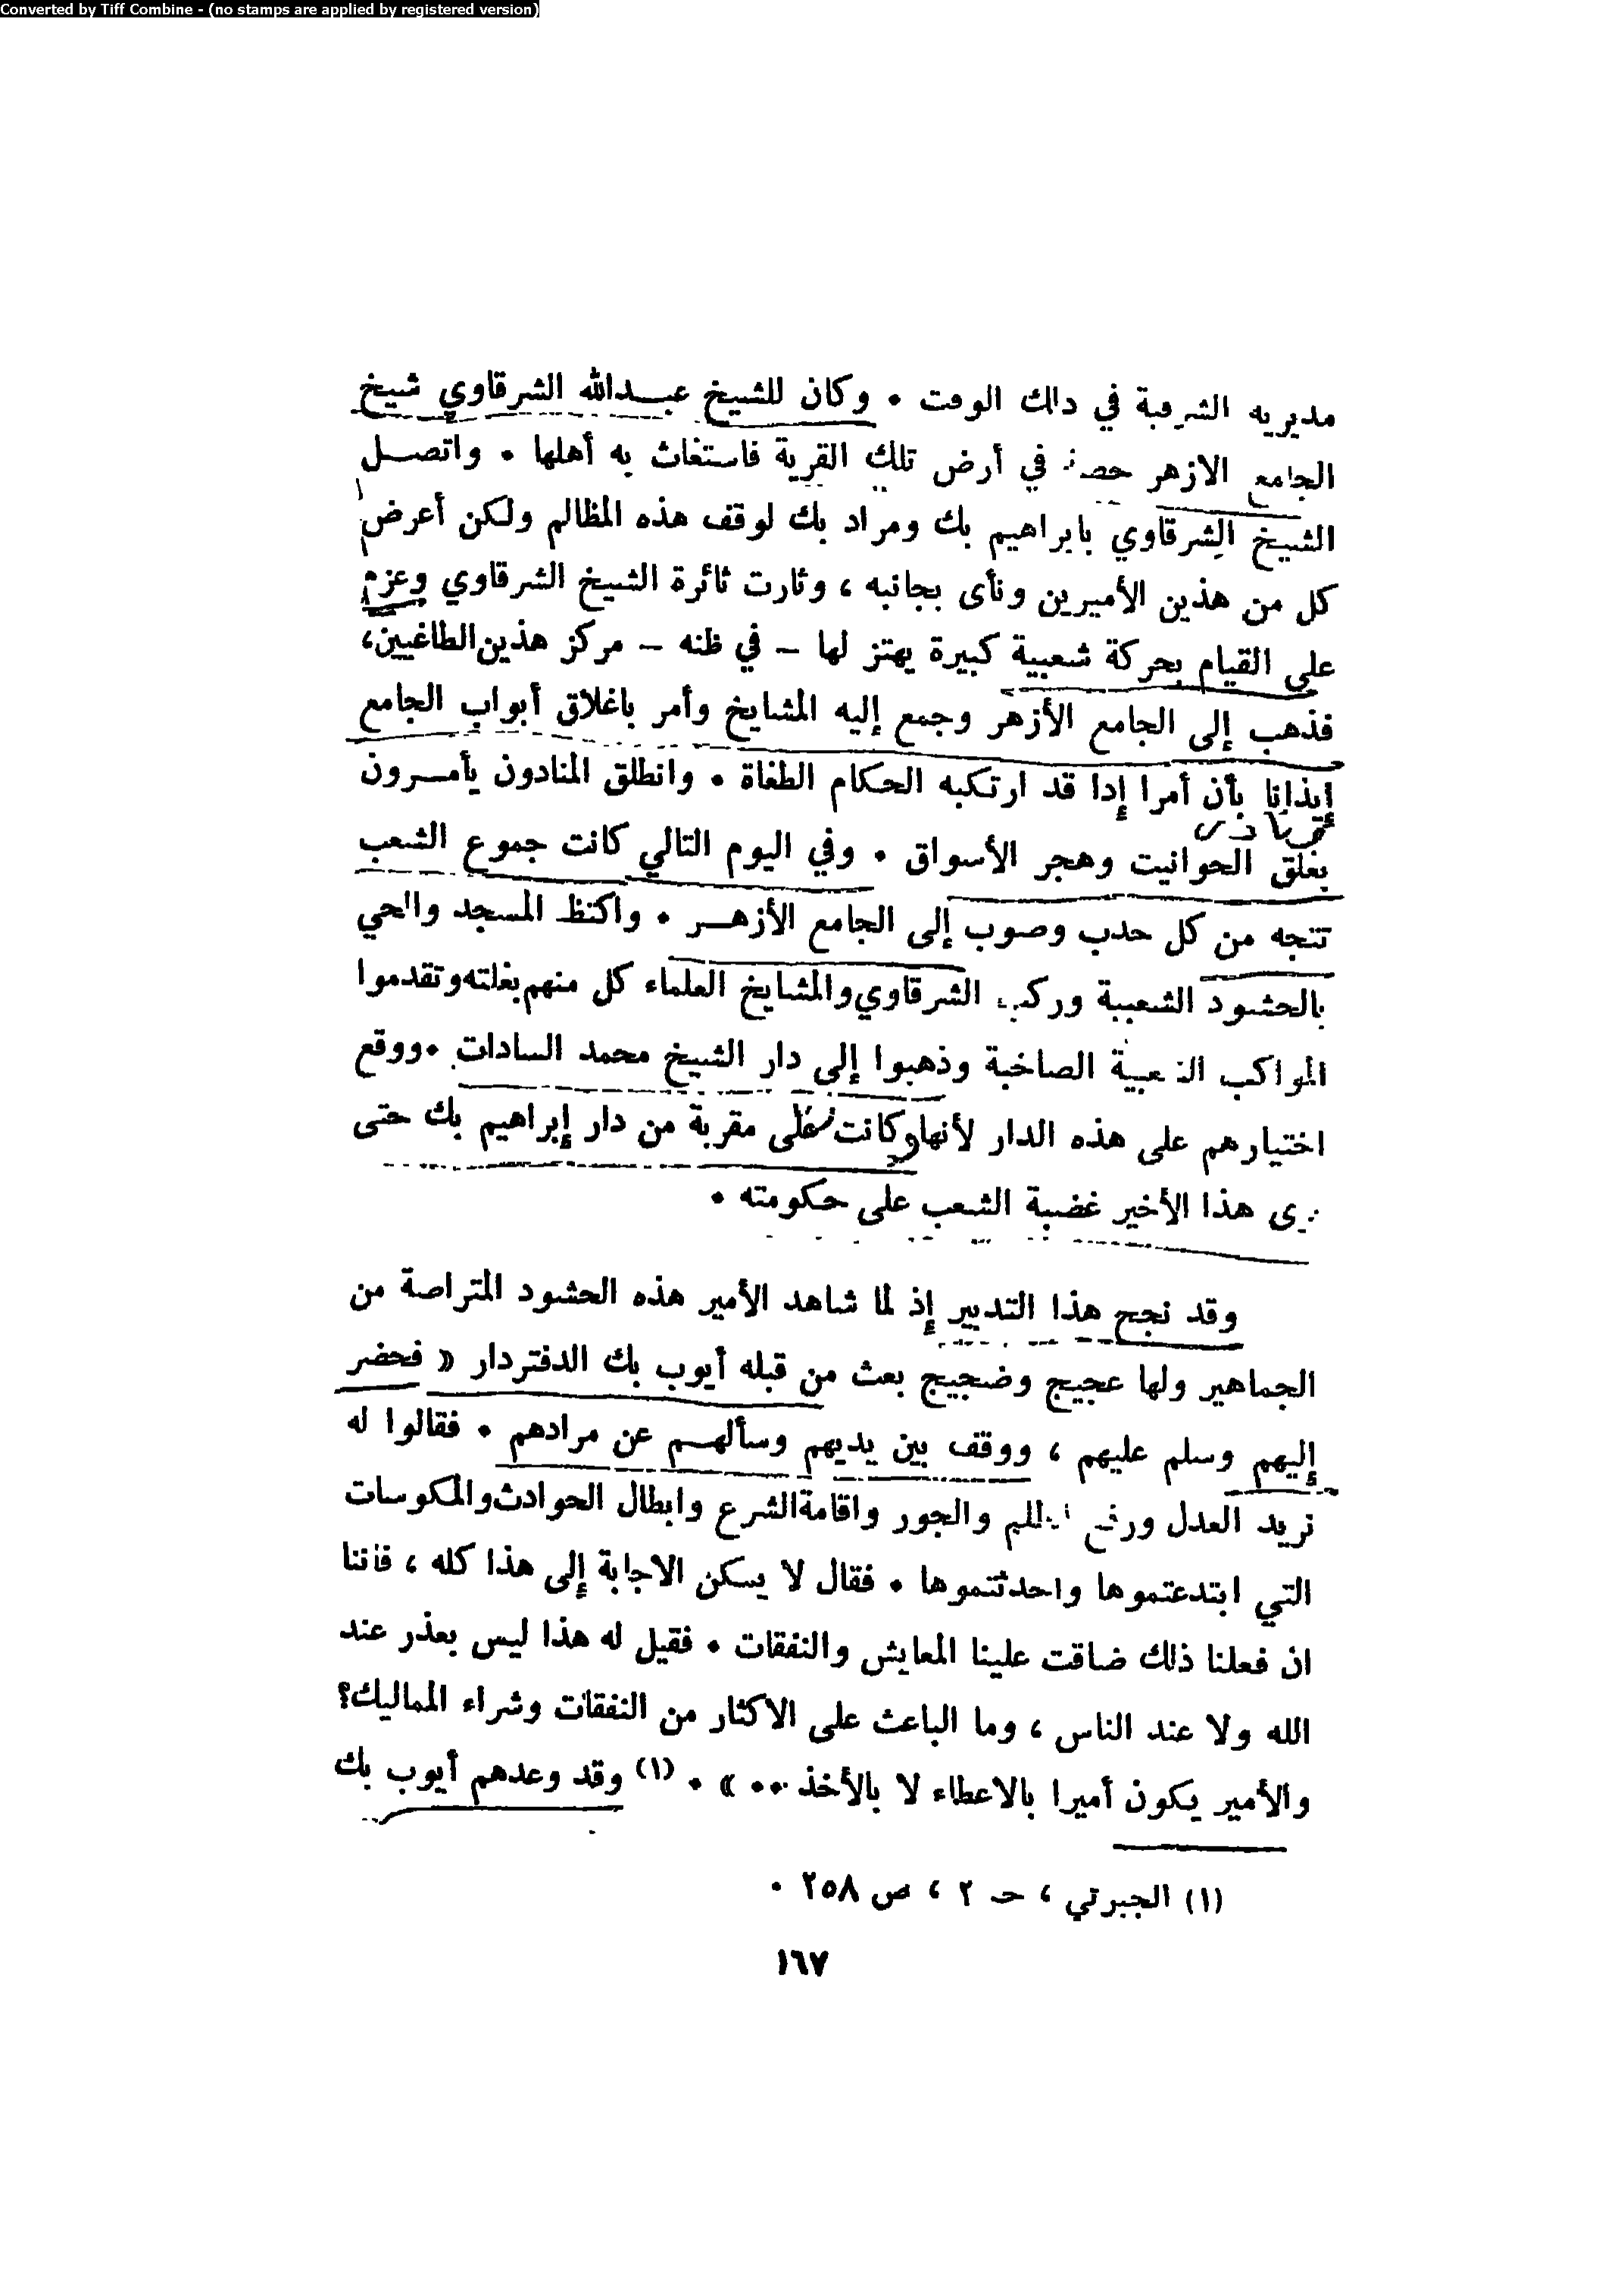 Converted by Tiff Combine - (no stamps are applied by registered version)
مديرية الشرقية في ذلك الوقت . وكان للشيخ عبدالله الشرقاوي شيخ
الجامع الازهر حصة في أرض تلك القرية فاستغاث به أهلها . واتصل
الشيخ الشرقاوي بابراهيم بك ومراد بك لوقف هذه المظالم ولكن أعرض
كل من هذين الأميرين ونأى بجانبه ، وثارت ثائرة الشيخ الشرقاوي وعزم
على القيام بحركة شعبية كبيرة يهتز لها – في ظنه – مركز هذين الطاغيين،
فذهب إلى الجامع الأزهر وجمع إليه المشايخ وأمر باغلاق أبواب الجامع
إيذانا بأن أمرا إدا قد ارتكبه الحكام الطغاة . وانطلق المنادون يأمرون
بغلق الحوانيت وهجر الأسواق . وفي اليوم التالي كانت جموع الشعب
تتجه من كل حدب وصوب إلى الجامع الأزهر . واكتظ المسجد والحي
بالحشود الشعبية وركب الشرقاوي والمشايخ العلماء كل منهم بغلته وتقدموا
المواكب الشعبية الصاخبة وذهبوا إلى دار الشيخ محمد السادات . ووقع
اختيارهم على هذه الدار لأنها كانت على مقربة من دار إبراهيم بك حتى
يرى هذا الأخير غضبة الشعب على حكومته .
وقد نجح هذا التدبير إذ لما شاهد الأمير هذه الحشود المتراصة من
الجماهير ولها عجيج وضجيج بعث من قبله أيوب بك الدفتردار « فحضر
إليهم وسلم عليهم ، ووقف بين يديهم وسألهم عن مرادهم . فقالوا له
نريد العدل ورفع الظلم والجور واقامة الشرع وابطال الحوادث والمكوسات
التي ابتدعتموها واحدثتموها . فقال لا يمكن الاجابة إلى هذا كله ، فاننا
ان فعلنا ذلك ضاقت علينا المعايش والنفقات . فقيل له هذا ليس بعذر عند
الله ولا عند الناس ، وما الباعث على الاكثار من النفقات وشراء المماليك؟
والأمير يكون أميرا بالاعطاء لا بالأخذ .. » . (١) وقد وعدهم أيوب بك
(١) الجبرتي ، حـ ٢ ، ص ٢٥٨ .
١٦٧